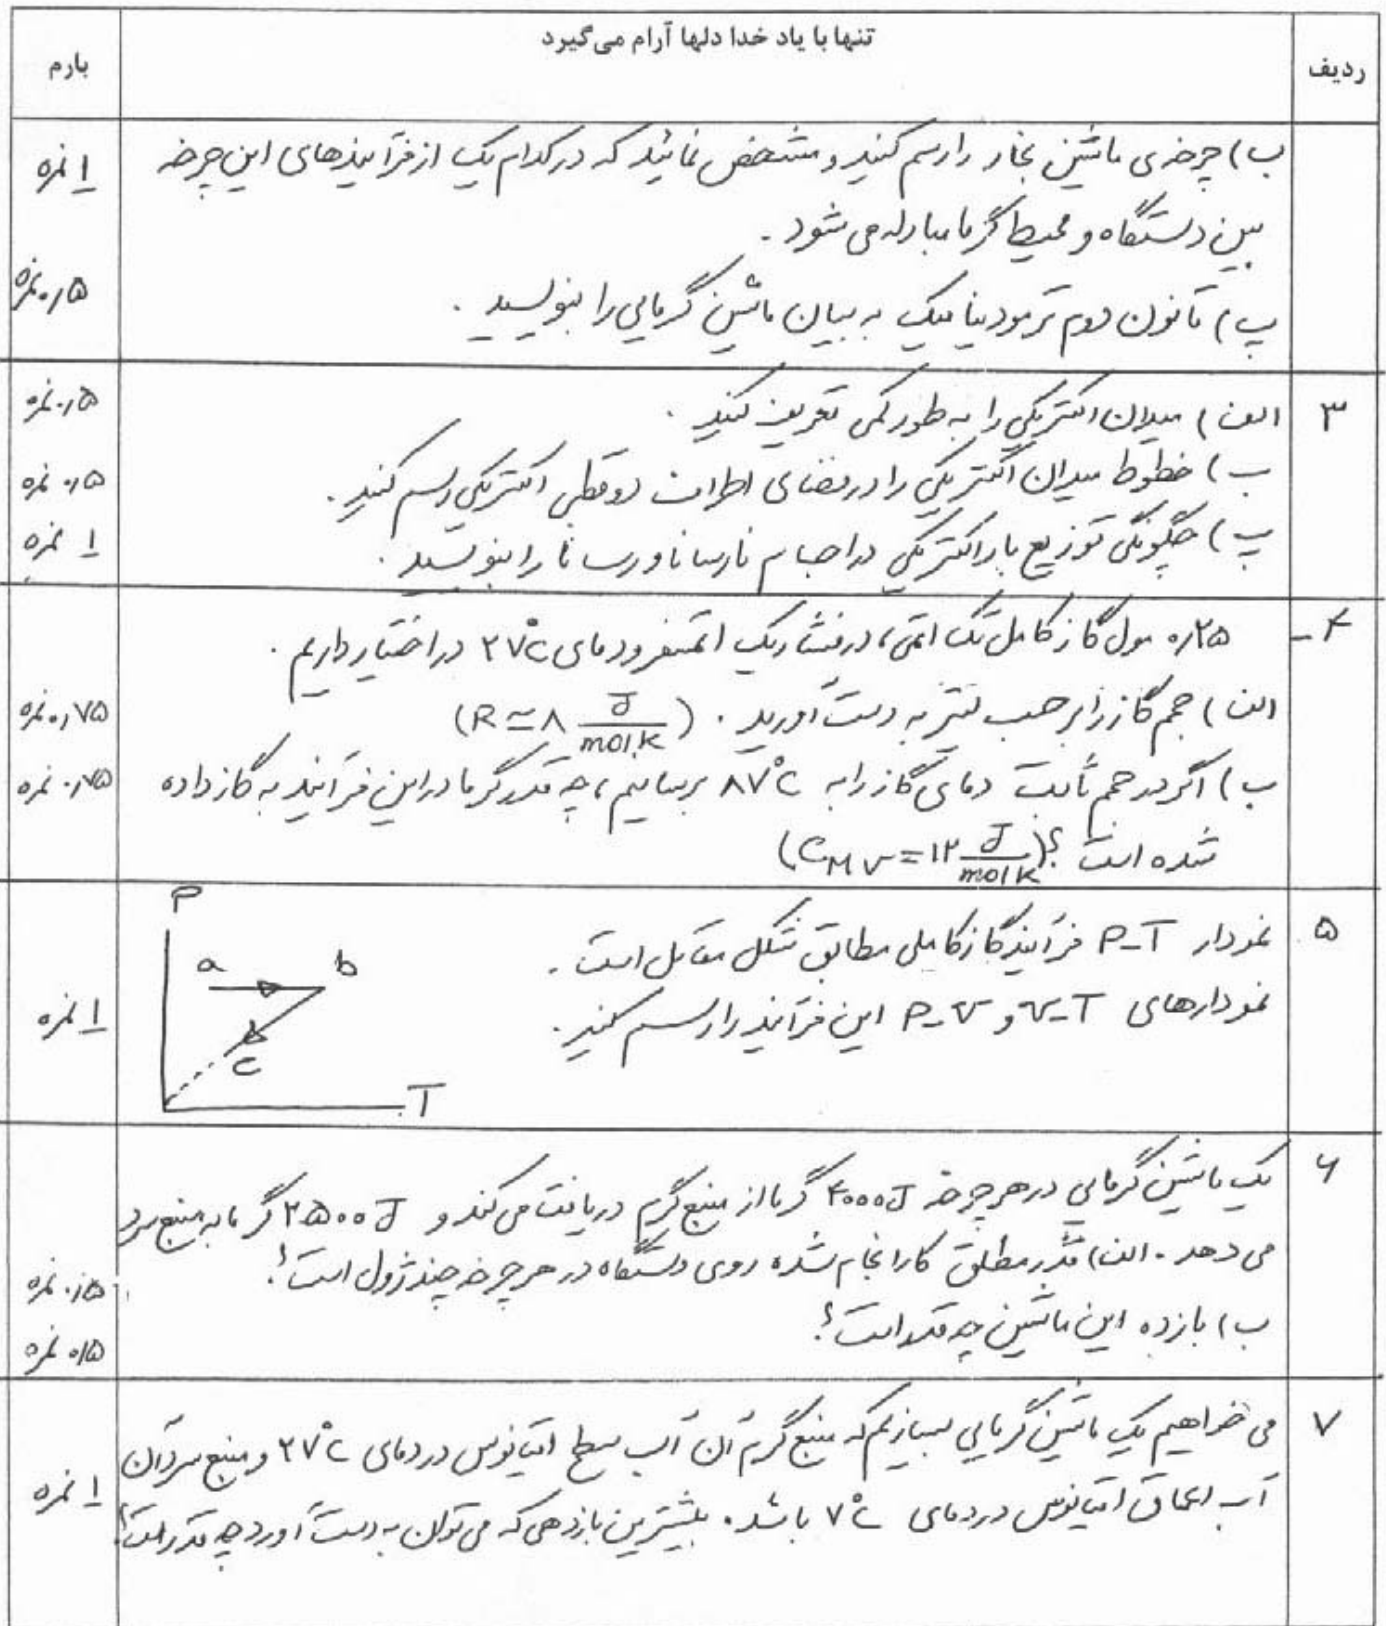 تنها با یاد خدا دلها آرام می‌گیرد
ردیف
بارم
ب) چرخه‌ی ماشین بخار را رسم کنید و مشخص نمائید که در کدام یک از فرآیندهای این چرخه
۱ نمره
بین دستگاه و محیط گرما مبادله می شود.
پ) قانون دوم ترمودینامیک به بیان ماشین گرمایی را بنویسید.
۰/۵ نمره
۳
الف) میدان الکتریکی را به طور کمی تعریف کنید.
۰/۵ نمره
ب) خطوط میدان الکتریکی را در فضای اطراف دوقطبی الکتریکی رسم کنید.
۰/۵ نمره
پ) چگونگی توزیع بار الکتریکی در اجسام نارسانا و رسانا را بنویسید.
۱ نمره
۴-
۰/۲۵ مول گاز کامل تک اتمی، در فشار یک اتمسفر و دمای ۲۷°C در اختیار داریم.
الف) حجم گاز را برحسب لیتر به دست آورید. (R ≃ ۸ J/mol.K)
۰/۷۵ نمره
ب) اگر در حجم ثابت دمای گاز را به ۸۷°C برسانیم، چه قدر گرما در این فرآیند به گاز داده
۰/۷۵ نمره
شده است؟ (CMV = ۱۲ J/mol K)
۵
نمودار P-T فرآیند گاز کاملی مطابق شکل مقابل است.
نمودارهای V-T و P-V این فرآیند را رسم کنید.
۱ نمره
P
a b
c
T
۶
یک ماشین گرمایی در هر چرخه ۴۰۰۰J گرما از منبع گرم دریافت می کند و ۲۵۰۰J گرما به منبع سرد
می دهد. الف) قدر مطلق کار انجام شده روی دستگاه در هر چرخه چند ژول است؟
۰/۵ نمره
ب) بازده این ماشین چه قدر است؟
۰/۵ نمره
۷
می خواهیم یک ماشین گرمایی بسازیم که منبع گرم آن آب سطح اقیانوس در دمای ۲۷°C و منبع سرد آن
آب اعماق اقیانوس در دمای ۷°C باشد. بیشترین بازدهی که می توان به دست آورد چه قدر است؟
۱ نمره